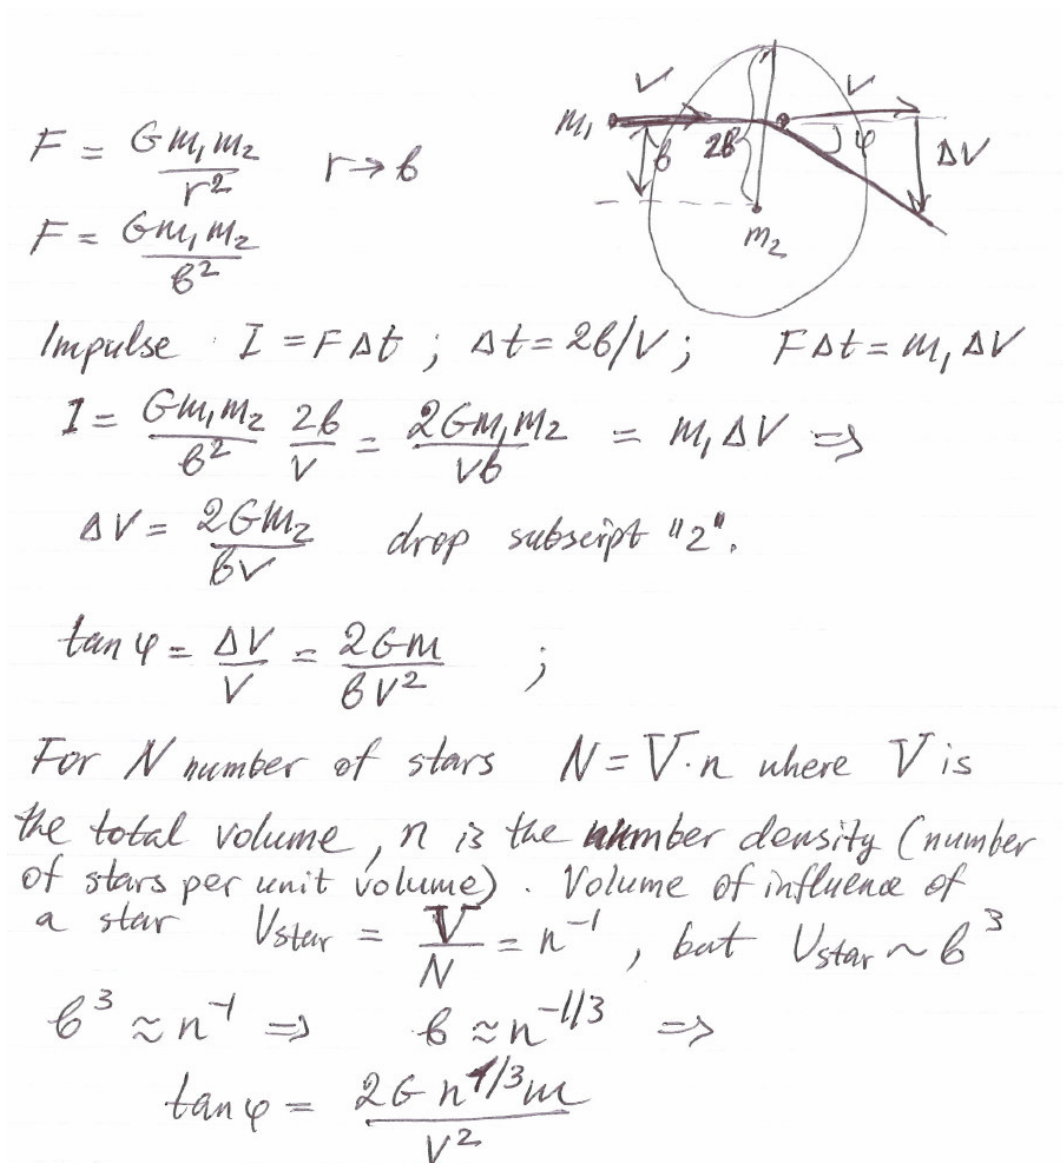 F = Gm₁m₂/r²   r → b
F = Gm₁m₂/b²
m₁ V b 2b V φ ΔV m₂
Impulse I = FΔt ; Δt = 2b/V ; FΔt = m₁ΔV
I = Gm₁m₂/b² 2b/V = 2Gm₁m₂/Vb = m₁ΔV =>
ΔV = 2Gm₂/bV drop subscript "2".
tan φ = ΔV/V = 2Gm/bV² ;
For N number of stars N = V·n where V is
the total volume, n is the number density (number
of stars per unit volume). Volume of influence of
a star Vstar = V/N = n⁻¹, but Vstar ~ b³
b³ ≈ n⁻¹ => b ≈ n^(-1/3) =>
tan φ = 2G n^(1/3) m/V²